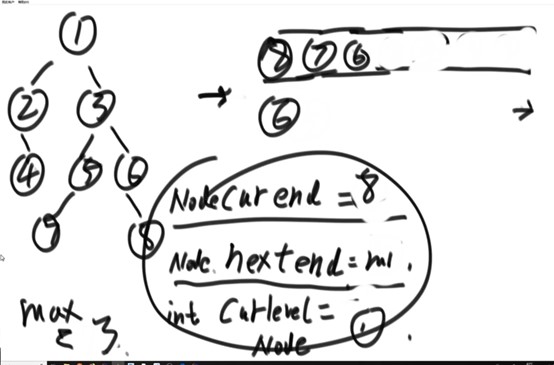 ①
② ③
④ ⑤ ⑥
⑦ ⑧
→ ⑧ ⑦ ⑥
⑥ →
Node Cur end = 8
Node nextend =
int Curlevel = ①
Node
max = 3.